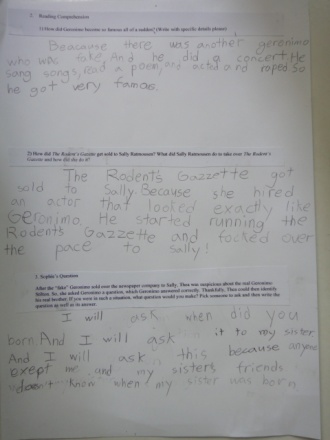 2. Reading Comprehension
1) How did Geronimo become so famous all of a sudden? (Write with specific details please)
Beacause there was another geronimo
who was fake, And he did a concert. He
sang songs, Read a poem, and acted and raped. So
he got very famous.
2) How did The Rodent's Gazette get sold to Sally Ratmousen? What did Sally Ratmousen do to take over The Rodent's
Gazette and how did she do it?
The Rodent's Gazzette got
sold to Sally. Because she hired
an actor that looked exactly like
Geronimo. He started running the
Rodent's Gazzette and focked over
the pace to Sally!
3. Sophie's Question
After the "fake" Geronimo sold over the newspaper company to Sally, Thea was suspicious about the real Geronimo
Stilton. So, she asked Geronimo a question, which Geronimo answered correctly. Thankfully, Thea could then identify
his real brother. If you were in such a situation, what question would you make? Pick someone to ask and then write the
question as well as its answer.
I will ask when did you
born. And I will ask it to my sister.
And I will ask this because anyone
exept me and my sister's friends
doesn't know when my sister was born